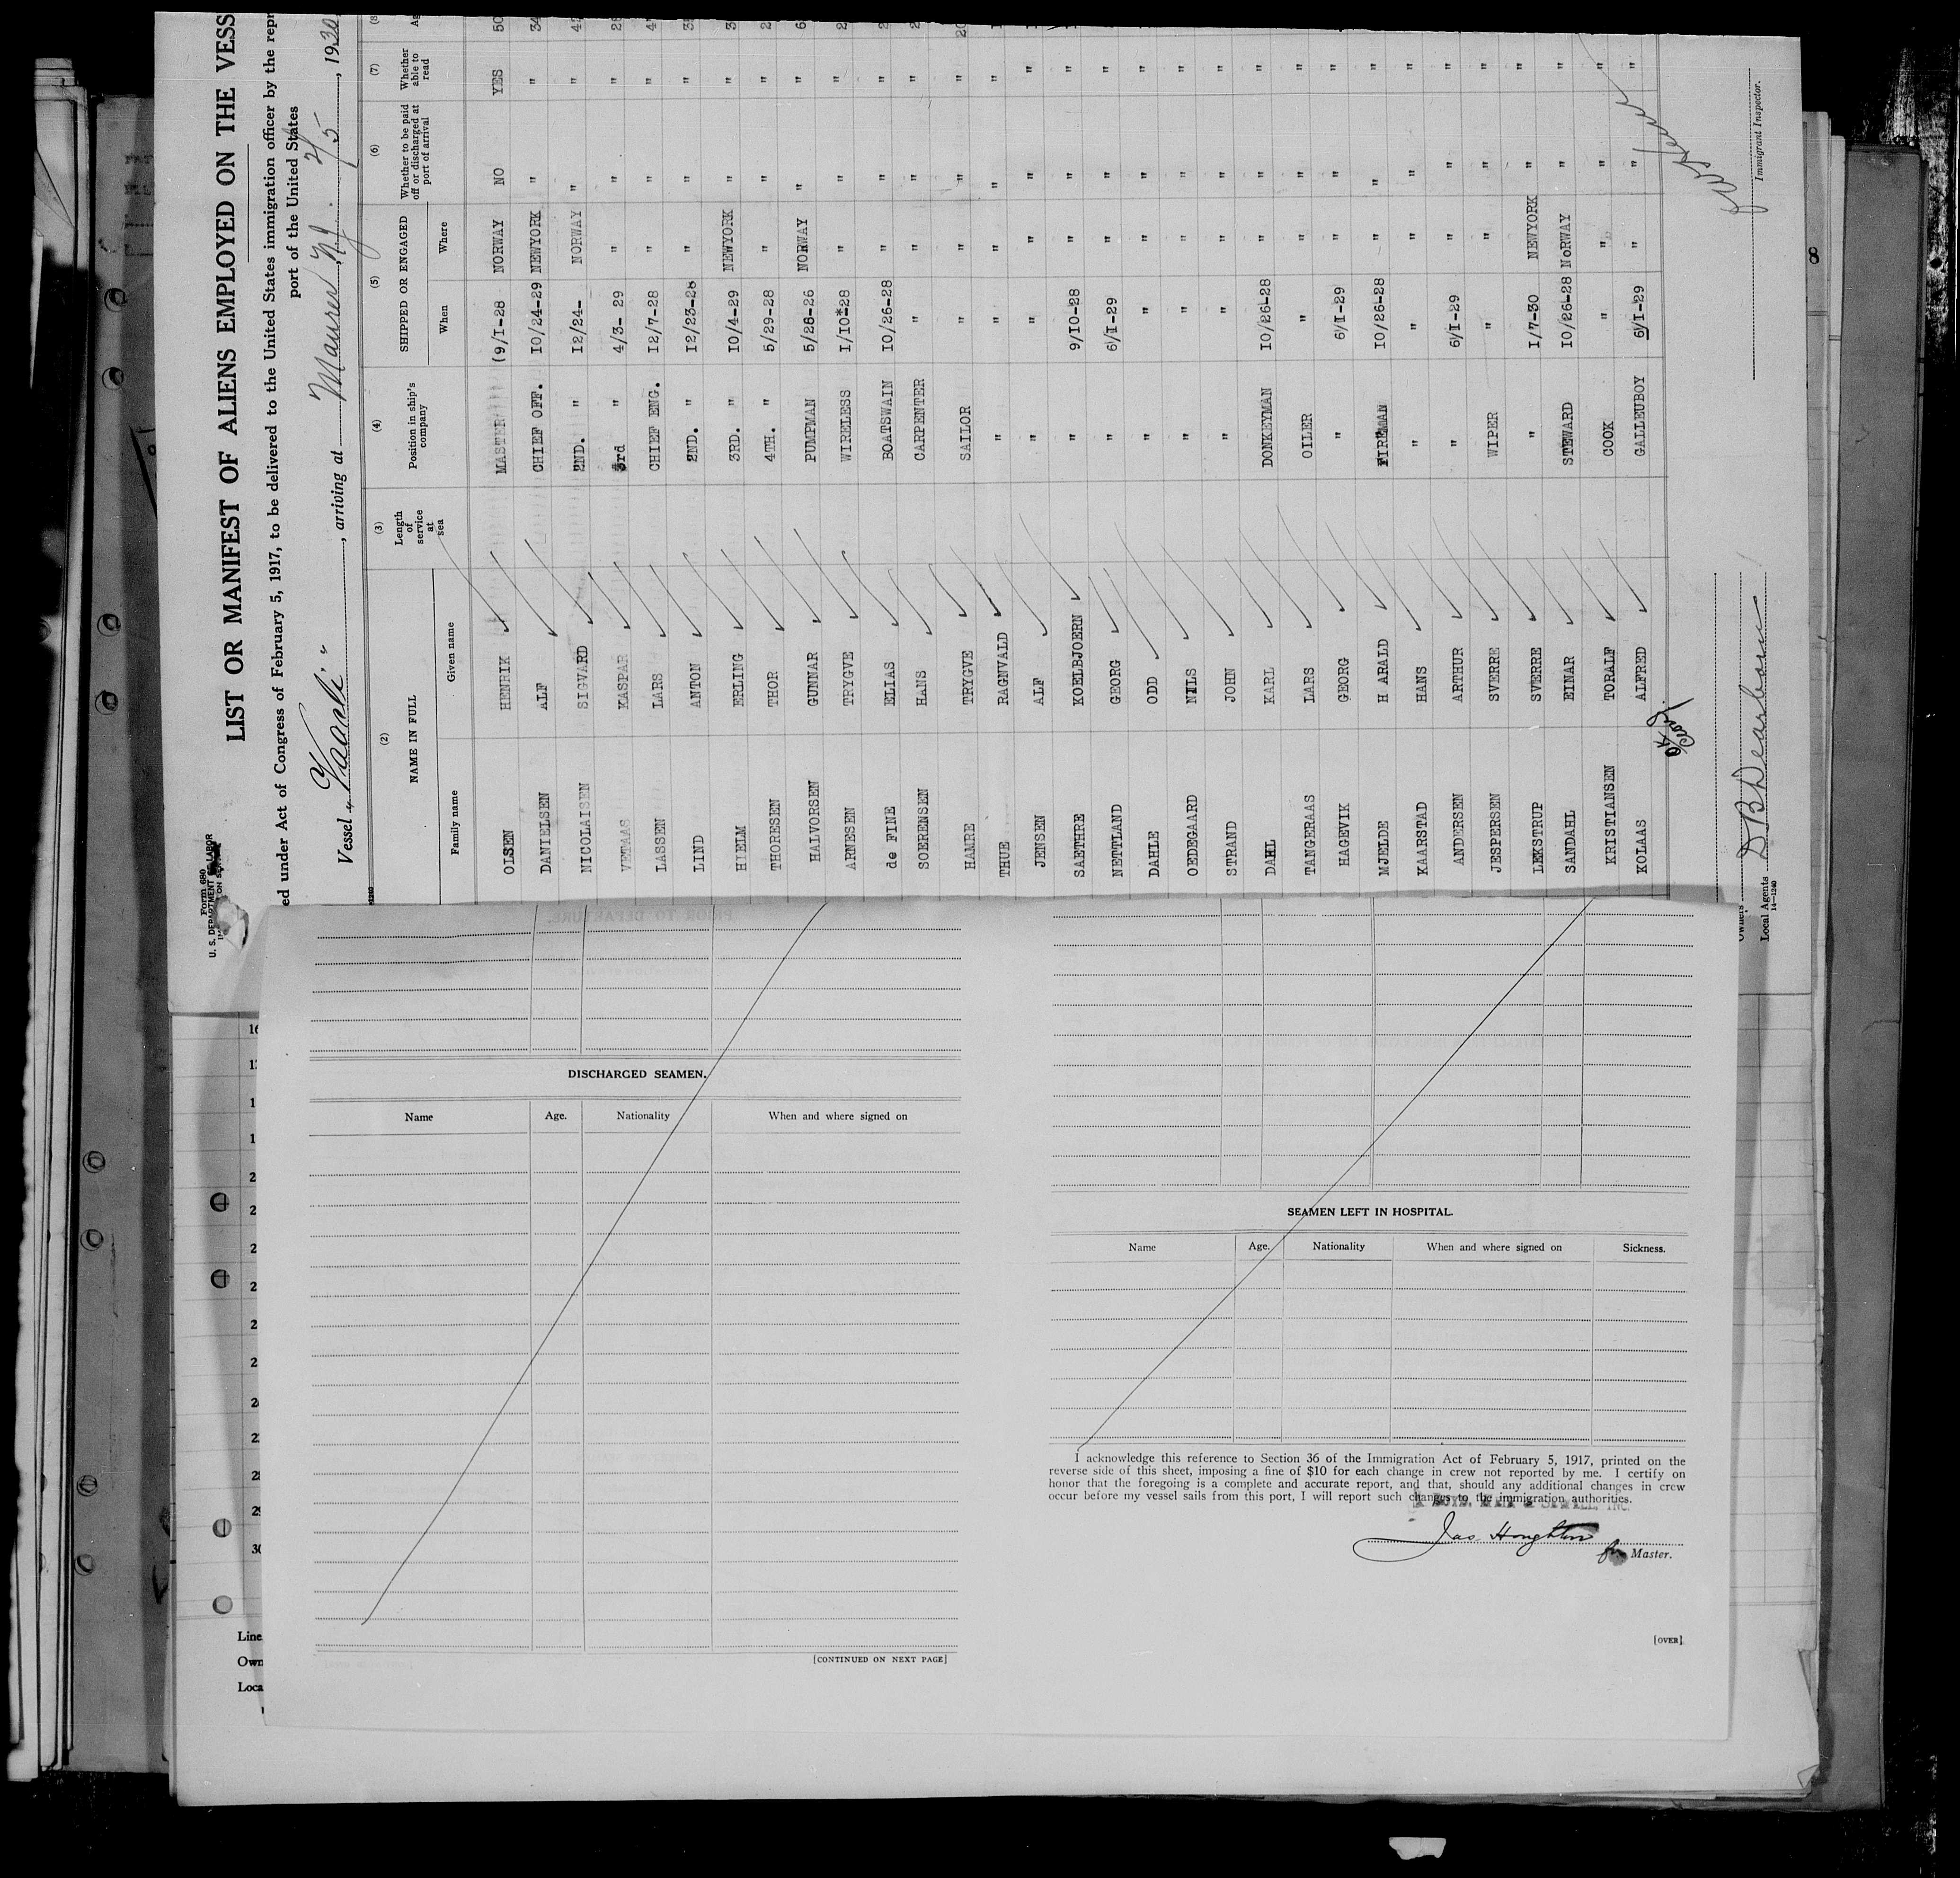 Form 680
U. S. DEPARTMENT OF LABOR
LIST OR MANIFEST OF ALIENS EMPLOYED ON THE VESS
ed under Act of Congress of February 5, 1917, to be delivered to the United States immigration officer by the repr
port of the United States
Vessel , arriving at Maurer N.J. 2/5 , 1930
(2) (3) (4) (5) (6) (7) (8
NAME IN FULL Length of service at sea Position in ship's company SHIPPED OR ENGAGED Whether to be paid off or discharged at port of arrival Whether able to read Ag
Family name Given name When Where
OLSEN HENRIK MASTER (9/I-28 NORWAY NO YES 50
DANIELSEN ALF CHIEF OFF. IO/24-29 NEWYORK " " 34
NICOLAISEN SIGVARD 2ND. " I2/24- NORWAY " "
VETAAS KASPAR 3rd " 4/3- 29 " " "
LASSEN LARS CHIEF ENG. I2/7-28 " " "
LIND ANTON 2ND. " I2/23-28 " " "
HIELM ERLING 3RD. " IO/4-29 NEWYORK " "
THORESEN THOR 4TH. " 5/29-28 " " "
HALVORSEN GUNNAR PUMPMAN 5/28-26 NORWAY " "
ARNESEN TRYGVE WIRELESS I/IO*-28 " " "
de FINE ELIAS BOATSWAIN IO/26-28 " " "
SOERENSEN HANS CARPENTER " " " "
HAMRE TRYGVE SAILOR " " " " 20
THUE RAGNVALD " " " " "
JENSEN ALF " " " " "
SAETHRE KOELBJOERN " 9/IO-28 " " "
NETTLAND GEORG " 6/I-29 " " "
DAHLE ODD " " " " "
OEDEGAARD NILS " " " " "
STRAND JOHN " " " " "
DAHL KARL DONKEYMAN IO/26-28 " " "
TANGERAAS LARS OILER " " " "
HAGEVIK GEORG " 6/I-29 " " "
MJELDE H ARALD FIREMAN IO/26-28 " " "
KAARSTAD HANS " " " " "
ANDERSEN ARTHUR " 6/I-29 " " "
JESPERSEN SVERRE WIPER " " " "
LEKSTRUP SVERRE " I/7-30 NEWYORK " "
SANDAHL EINAR STEWARD IO/26-28 NoRWAY " "
KRISTIANSEN TORALF COOK " " " "
KOLAAS ALFRED GALLEUBOY 6/I-29 " " "
Immigrant Inspector.
Owners
Local Agents D B Dearborn
14—1240
8
DISCHARGED SEAMEN.
Name Age. Nationality When and where signed on
[CONTINUED ON NEXT PAGE]
SEAMEN LEFT IN HOSPITAL.
Name Age. Nationality When and where signed on Sickness.
I acknowledge this reference to Section 36 of the Immigration Act of February 5, 1917, printed on the
reverse side of this sheet, imposing a fine of $10 for each change in crew not reported by me. I certify on
honor that the foregoing is a complete and accurate report, and that, should any additional changes in crew
occur before my vessel sails from this port, I will report such changes to the immigration authorities.
Jas Houghton
for Master.
[OVER]
29
30
Line
Own
Loca